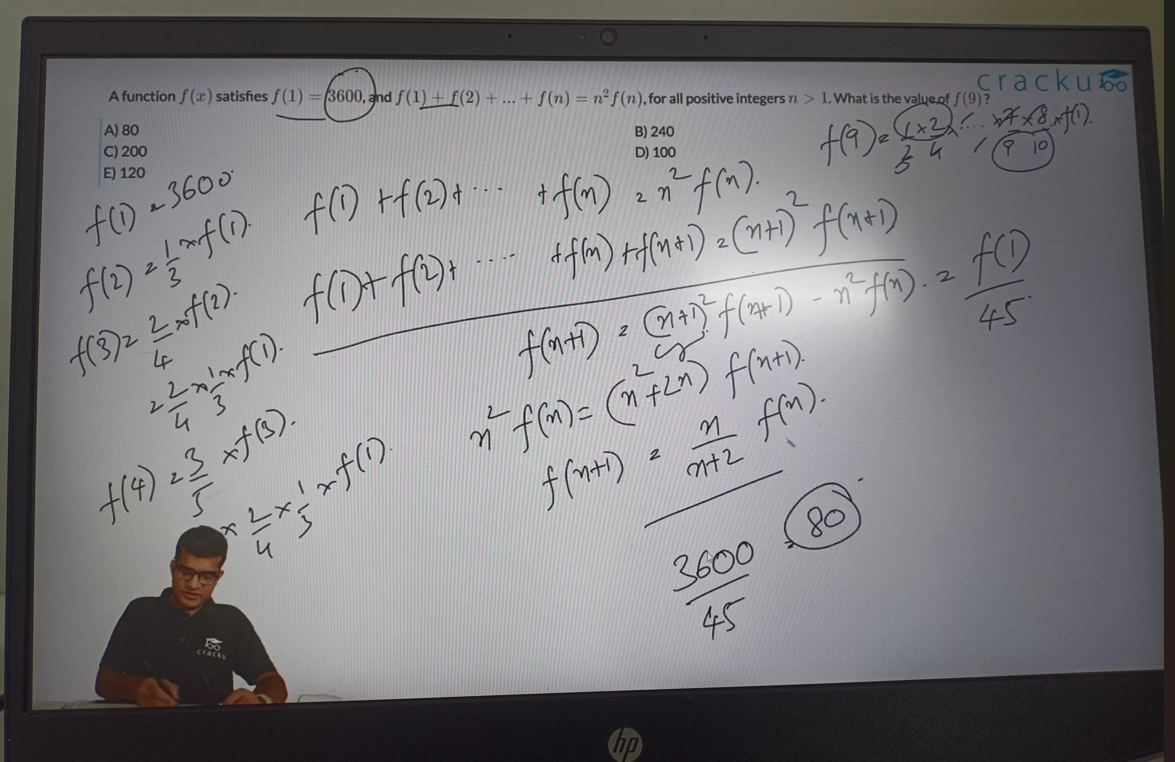 cracku
A function f(x) satisfies f(1) = 3600, and f(1) + f(2) + ... + f(n) = n²f(n), for all positive integers n > 1. What is the value of f(9)?
A) 80
B) 240
C) 200
D) 100
E) 120
f(9) = (1×2)/(3 4) × .... ×7×8/(9 10) ×f(1).
f(1) = 3600
f(2) = 1/3 × f(1).
f(3) = 2/4 × f(2).
= 2/4 × 1/3 × f(1).
f(4) = 3/5 × f(3).
× 2/4 × 1/3 × f(1).
f(1) + f(2) + ... + f(n) = n² f(n).
f(1) + f(2) + .... + f(n) + f(n+1) = (n+1)² f(n+1)
f(n+1) = (n+1)² f(n+1) - n² f(n).
= f(1)/45
n² f(n) = (n²+2n) f(n+1).
f(n+1) = n/(n+2) f(n).
3600/45 = 80
cracku
hp